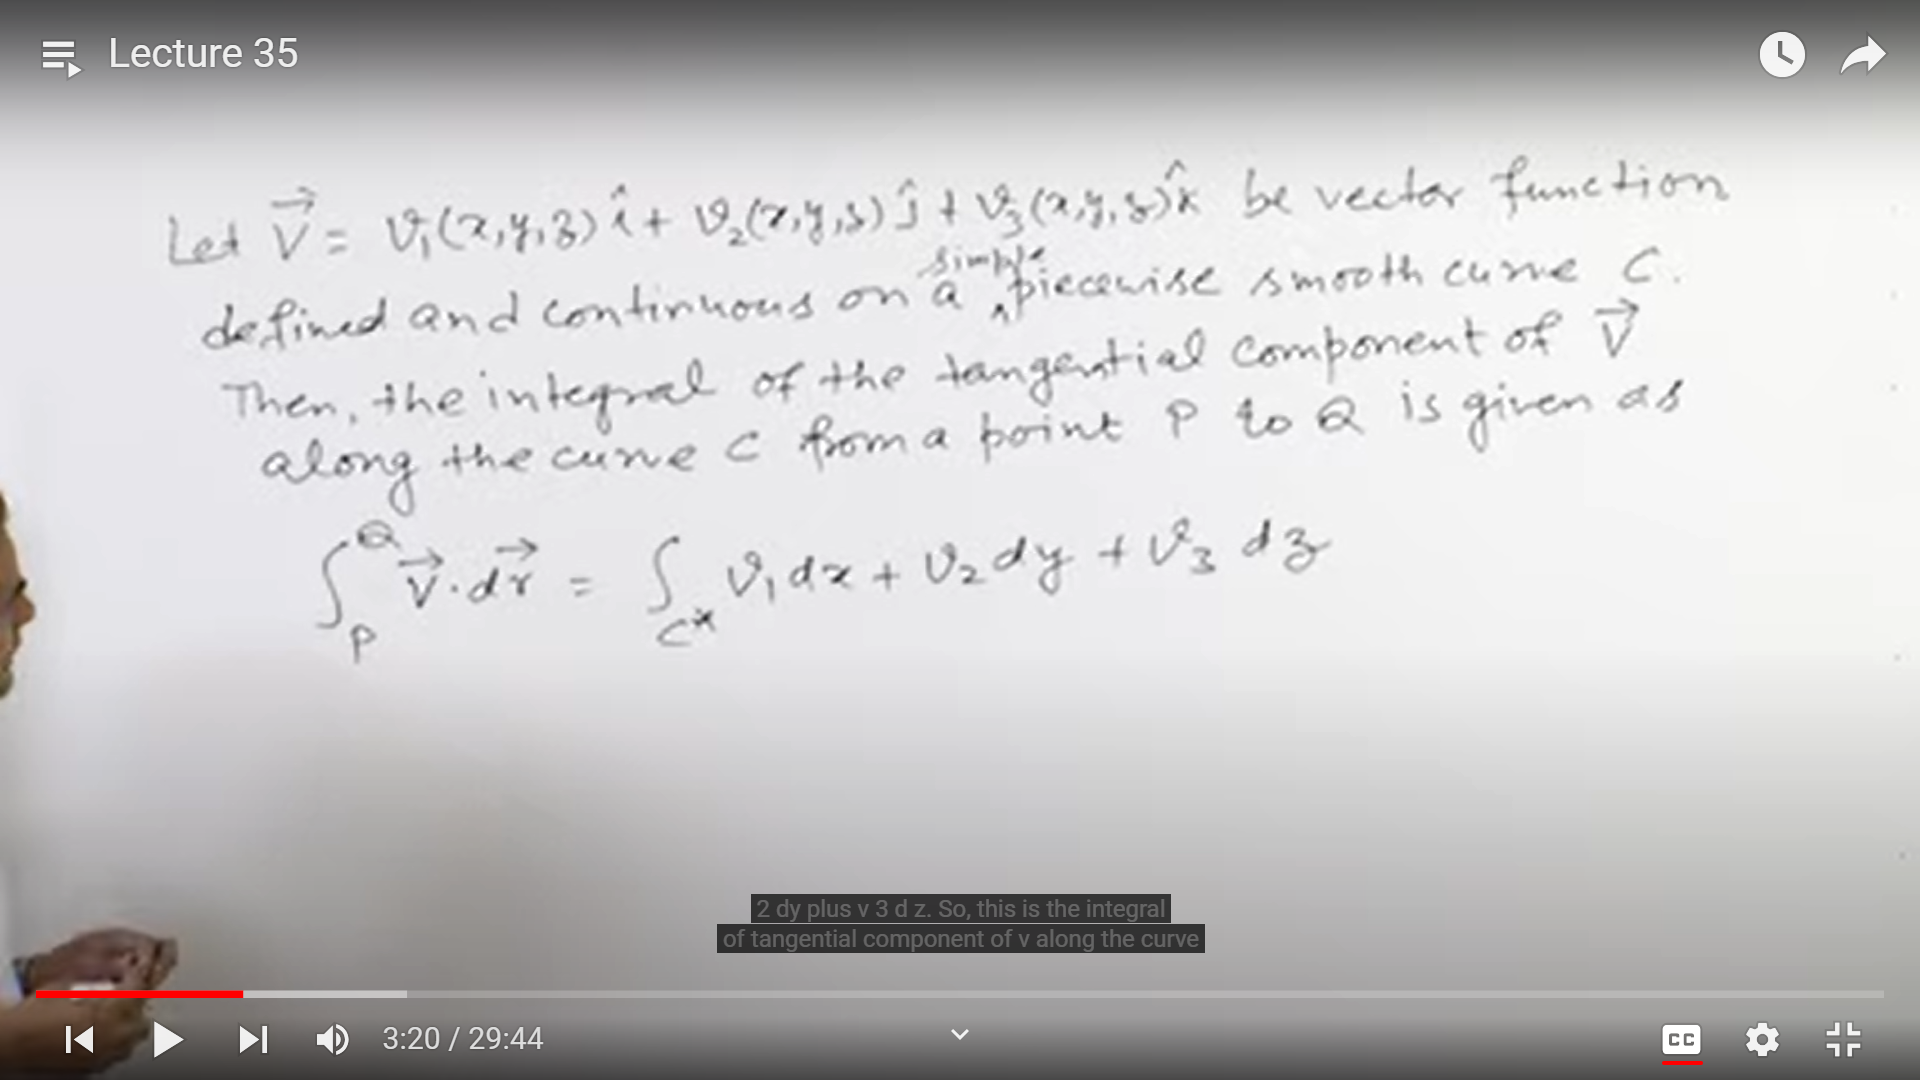 Lecture 35
Let V⃗ = v₁(x,y,z) î + v₂(x,y,z) ĵ + v₃(x,y,z) k̂ be vector function
simple
defined and continuous on a ^ piecewise smooth curve C.
Then, the integral of the tangential component of V⃗
along the curve C from a point P to Q is given as
∫_P^Q V⃗·dr⃗ = ∫_C* v₁dx + v₂dy + v₃ dz
2 dy plus v 3 d z. So, this is the integral
of tangential component of v along the curve
3:20 / 29:44
CC